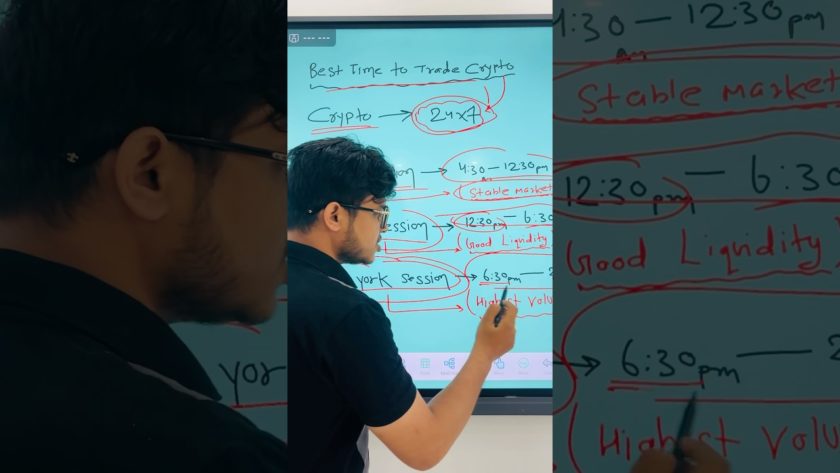 Best Time to Trade Crypto
Crypto → 24x7
→ 4:30 am — 12:30pm
Stable market
ession → 12:30pm — 6:30
Good Liquidity
york session → 6:30pm — 2
Highest Volu
4:30 am — 12:30pm
Stable market
12:30pm — 6:30
Good Liquidity
yor
→ 6:30pm — 2
Highest Volu